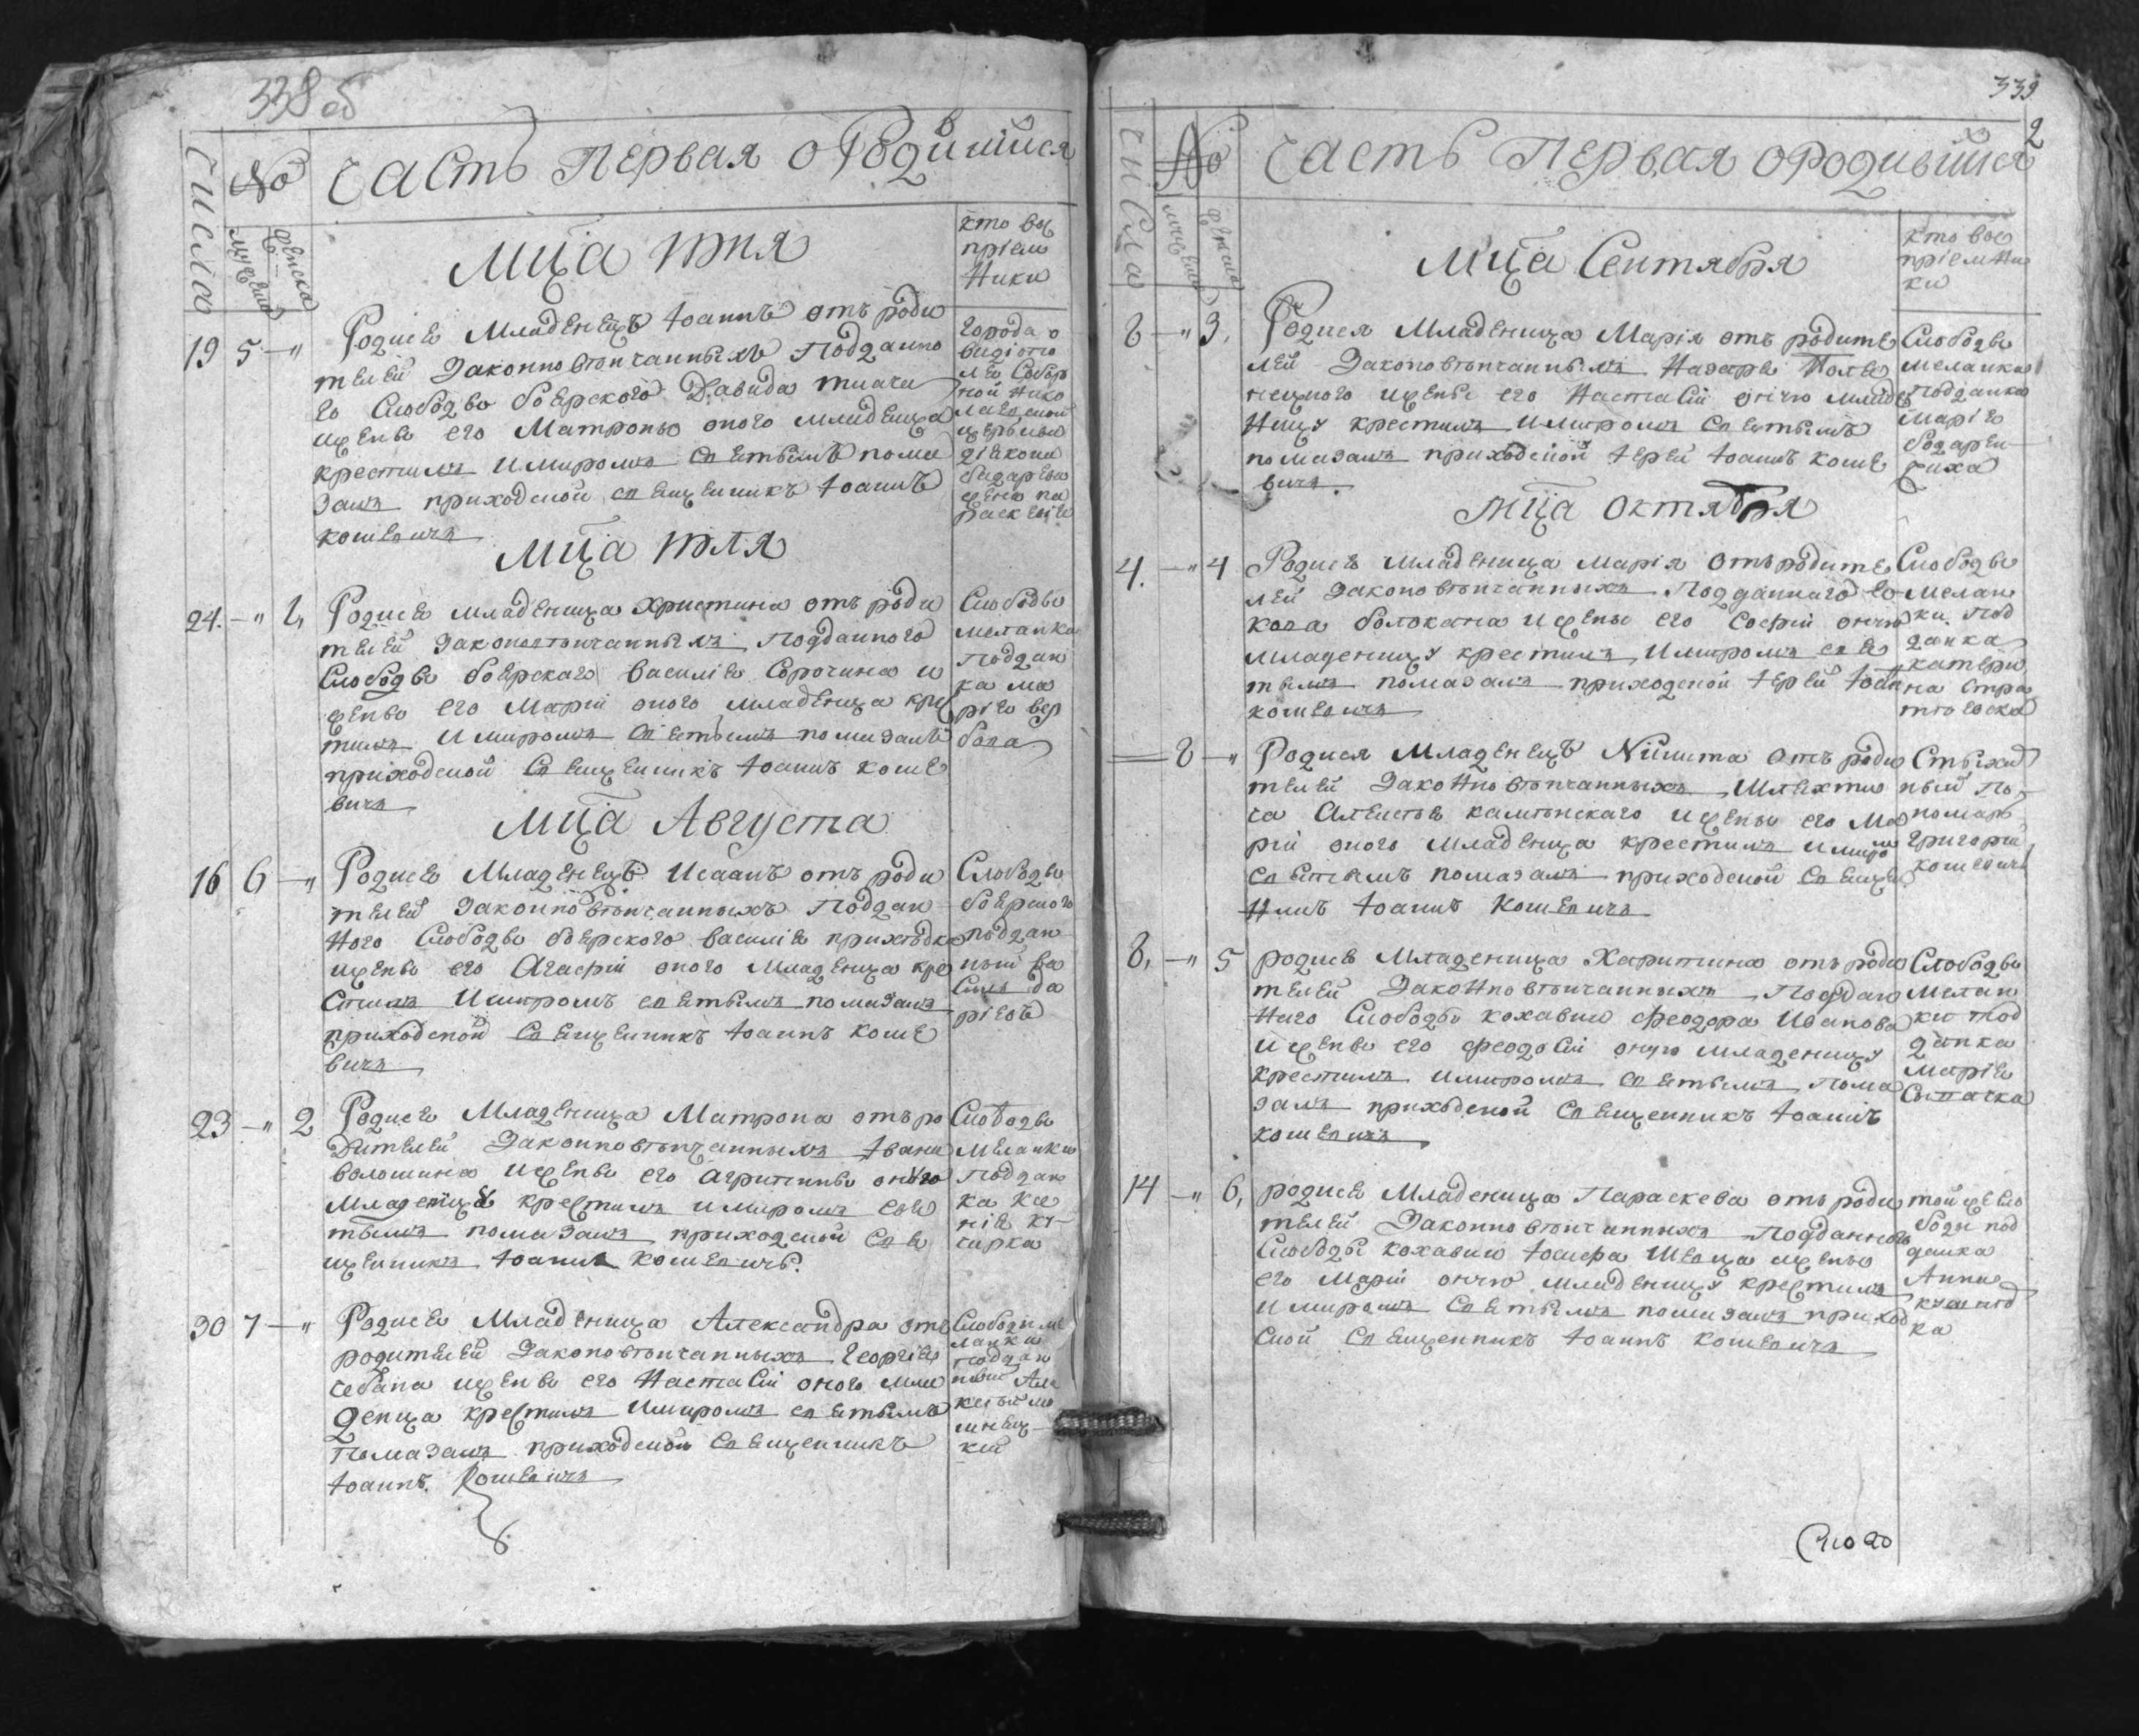 338 об
числа
№
Часть Первая о Родившихся
мужеска
женска
кто вос
прiем
ники
Мца Iюня
19 5 — "
Родися Младенецъ Iоаннъ отъ роди
телей Законновѣнчанныхъ Подданно
го Слободы боерского Давида ткача
иженѣ его Матроны оного младенца
крестилъ имиромъ святымъ пома
залъ приходской священникъ Iоаннъ
кошевичъ
города о
видiопо
ля Собор
ной Нико
лаевской
церькви
дiякона
жена па
раскевiя
Мца Iюля
24. — " 1,
Родися младеница Христина отъ роди
телей законновѣнчанныхъ Подданного
Слободы боерскаго василiя Сорочина и
жены его Марiи оного младенца крес
тилъ имиромъ святымъ помазалъ
приходской Священникъ Iоаннъ коше
вичъ
Слободы
меланки
Подан
ка ма
рiя вер
бова
Мца Августа
16 6 — "
Родися Младенецъ Исаакъ отъ роди
телей Законновѣнчанныхъ Поддан
ного Слободы боерского василiя прихѣдка
иженѣ его Агафiи оного младенца кре
стилъ имиромъ святымъ помазалъ
приходской Священникъ Iоаннъ коше
вичъ
Слободы
боерского
поддан
ный ва
силь да
рiевъ
23 — " 2
Родися Младеница Матрона отъ ро
дителей Законновѣнчанныхъ Iвана
волошина иженѣ его Агрипины оную
Младеницу крестилъ имиромъ свя
тымъ помазалъ приходской Свя
щенникъ Iоаннъ Кошевичъ.
Слободы
Меланки
Поддан
ка Ксе
нiя ку
чирка
30 7 — "
Родися Младеница Александра отъ
родителей Законновѣнчанныхъ Георгiя
чебана иженѣ его Настасiи оного мла
денца крестилъ имиромъ святымъ
Помазалъ приходской Священникъ
Iоаннъ. Кошевичъ
Слободи ме
ланки
поддан
ный
339
2
числа
№
мужеска
женска
Часть Первая о Родившихся
Мца Сентября
кто вос
прiемни
ки
8 — " 3.
Родися Младеница Марiя отъ родите
лей Законновѣнчанныхъ Назарѣ Поле
иженѣ его Настасiи оную младе
ницу крестилъ имиромъ святымъ
помазалъ приходской Iерей Iоаннъ коше
вичъ.
Слободы
меланки
Подданка
Марiя
бодарен
чиха
Мца Октября
4. — " 4
Родися младеница марiя отъ родите
лей законновѣнчанныхъ Подданнаго
болокана иженѣ его Софiи оную
младеницу крестилъ имиромъ свя
тымъ помазалъ приходской Iерей Iоан
кошевичъ
Слободы
мелан
ки. Под
данка
катери
на
— 8 — "
Родися Младенецъ Никита отъ роди
телей Законновѣнчанныхъ, Шляхти
ча Алексѣя каменскаго иженѣ его Ма
рiи оного младенца крестилъ имиромъ
святымъ помазалъ приходской Священ
никъ Iоаннъ Кошевичъ
ный По
номарь
григорiй
кошевичъ
8, — " 5
родися Младеница Харитина отъ роди
телей Законновѣнчанныхъ Поддан
наго Слободы кохавки феодора Иванова
иженѣ его феодосiи оную младеницу
крестилъ имиромъ святымъ пома
залъ приходской Священникъ Iоаннъ
кошевичъ
Слободы
Мелан
ки под
данка
марiя
14 — " 6,
родися Младеница Параскева отъ роди
телей Законновѣнчанныхъ Подданного
Слободы кохавки Iосифа Швеца иженѣ
его Марiи оную младеницу крестилъ
имиромъ святымъ помазалъ приход
ской Священникъ Iоаннъ кошевичъ
тойже сло
боди под
данка
Анна